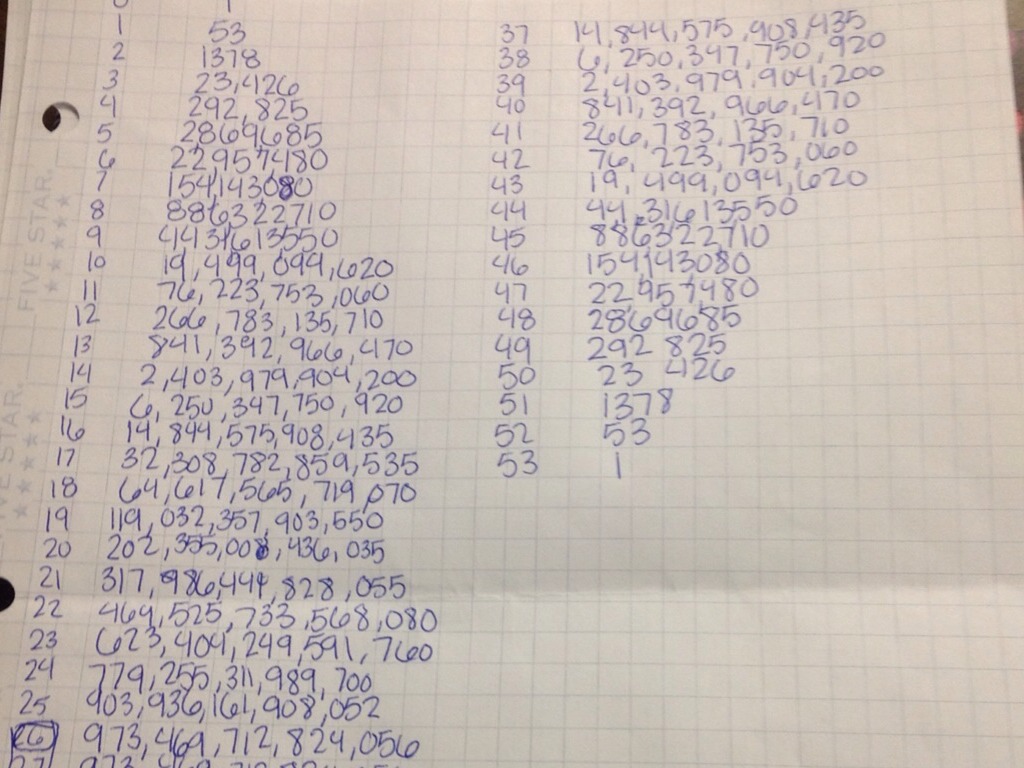 0 1
1 53
2 1378
3 23,426
4 292,825
5 2869685
6 22957480
7 154143080
8 886322710
9 4431613550
10 19,499,094,620
11 76,223,753,060
12 266,783,135,710
13 841,392,966,470
14 2,403,979,904,200
15 6,250,347,750,920
16 14,844,575,908,435
17 32,308,782,859,535
18 64,617,565,719,070
19 119,032,357,903,550
20 202,355,008,436,035
21 317,986,441,828,055
22 464,525,733,568,080
23 623,404,249,591,760
24 779,255,311,989,700
25 903,936,161,908,052
26 973,469,712,824,056
27
37 14,844,575,908,435
38 6,250,347,750,920
39 2,403,979,904,200
40 841,392,966,470
41 266,783,135,710
42 76,223,753,060
43 19,499,094,620
44 44,31613550
45 886322710
46 154143080
47 22957480
48 2869685
49 292 825
50 23 426
51 1378
52 53
53 1
FIVE STAR.
FIVE STAR.